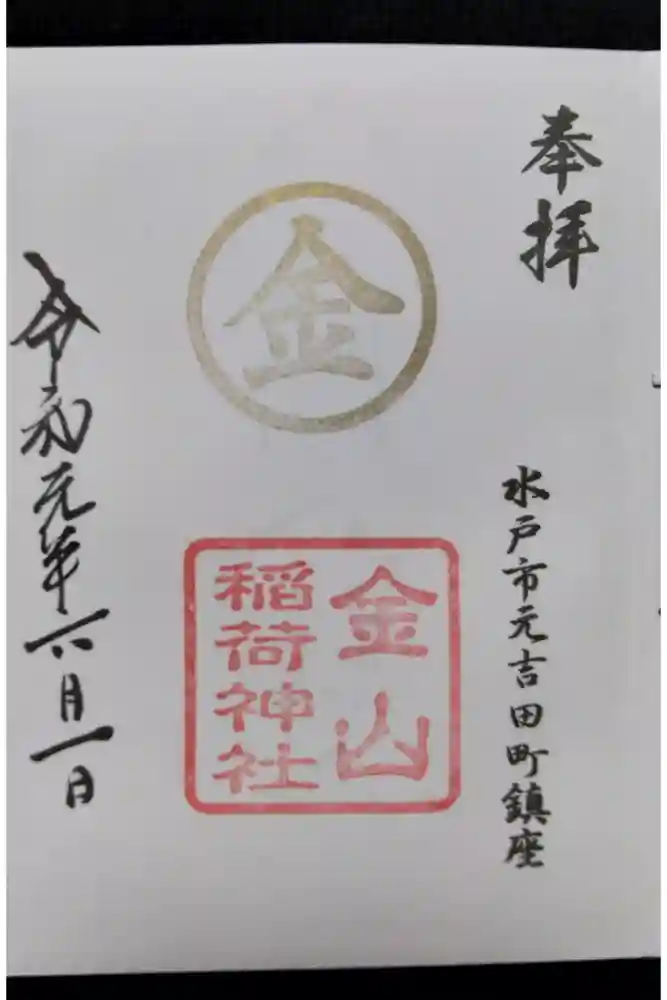 奉拝
水戸市元吉田町鎮座
金
金山
稲荷神社
令和元年六月一日